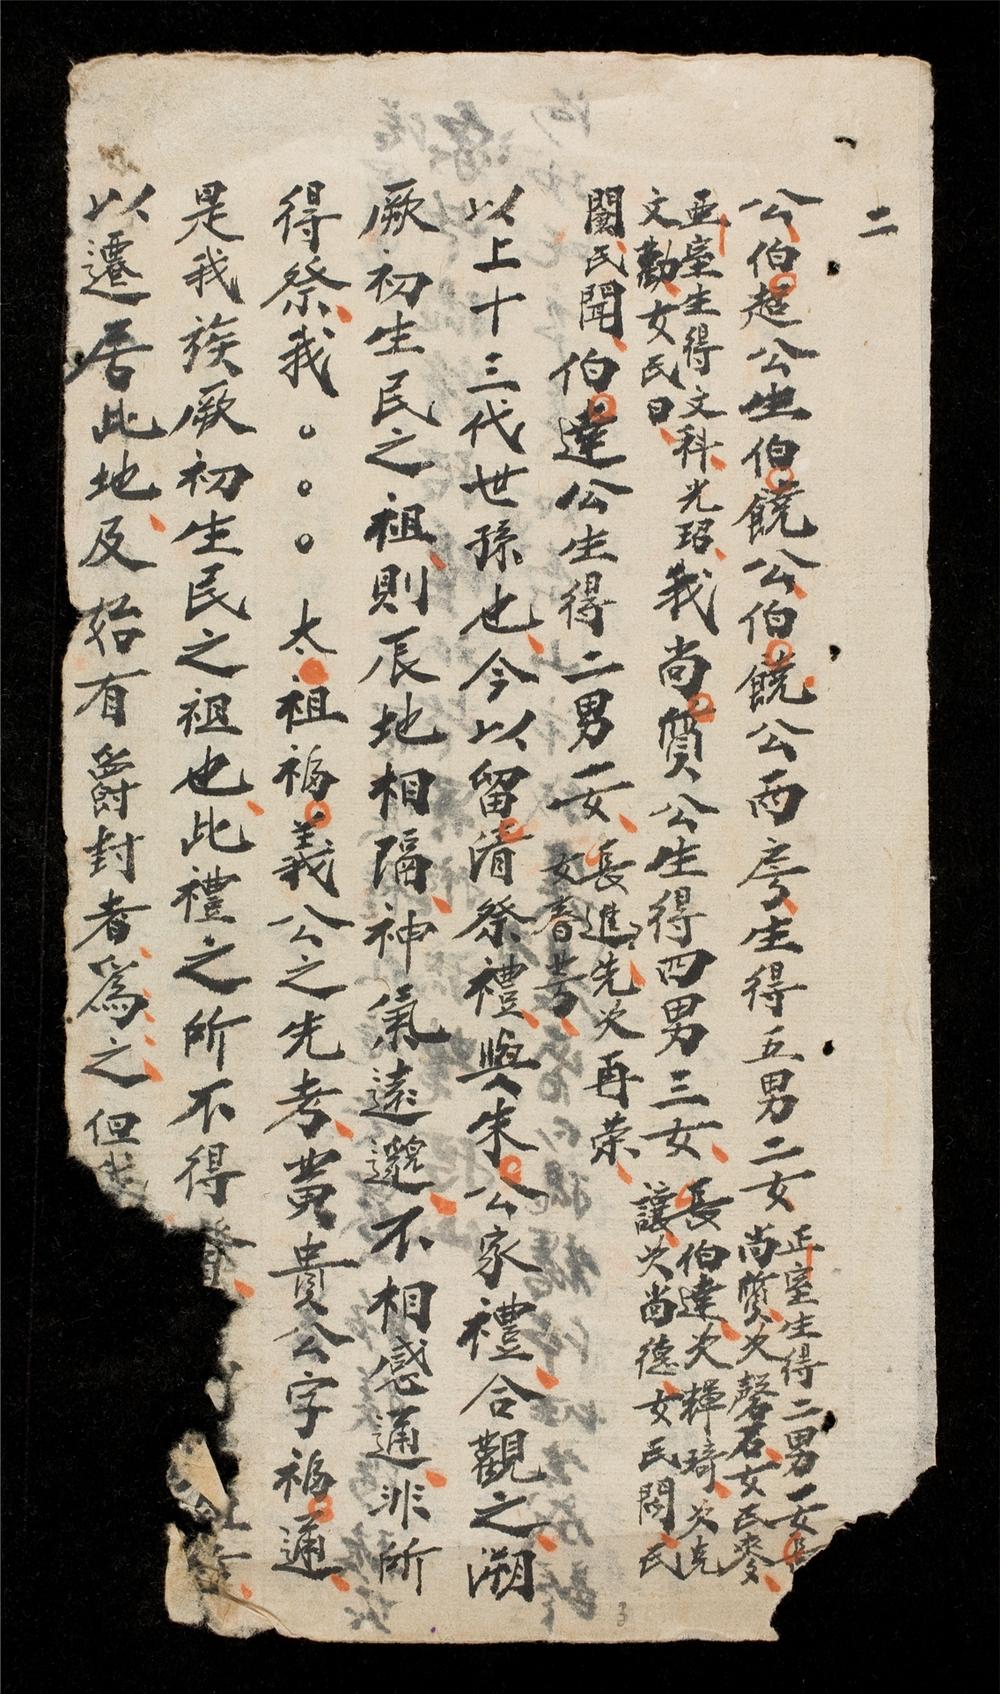 二
公伯超公生伯饒公伯饒公兩房生得五男二女 正室生得二男一女長
尚質次馨石女民麥
亞室生得文科光玿
文勸女民日 我尚質公生得四男三女 長伯達次輝琦次克
讓次尚德女民閱民
闌民聞 伯達公生得二男一女 長進先次再荣
女春芳
以上十三代世孫也今以留清祭禮與朱公家禮合觀之溯
厥初生民之祖則辰地相隔神氣遠邈不相感通非所
得祭我○○○太祖福義公之先考黄貴公字福通
是我族厥初生民之祖也此禮之所不得
以遷居此地及始有爵封者爲之但